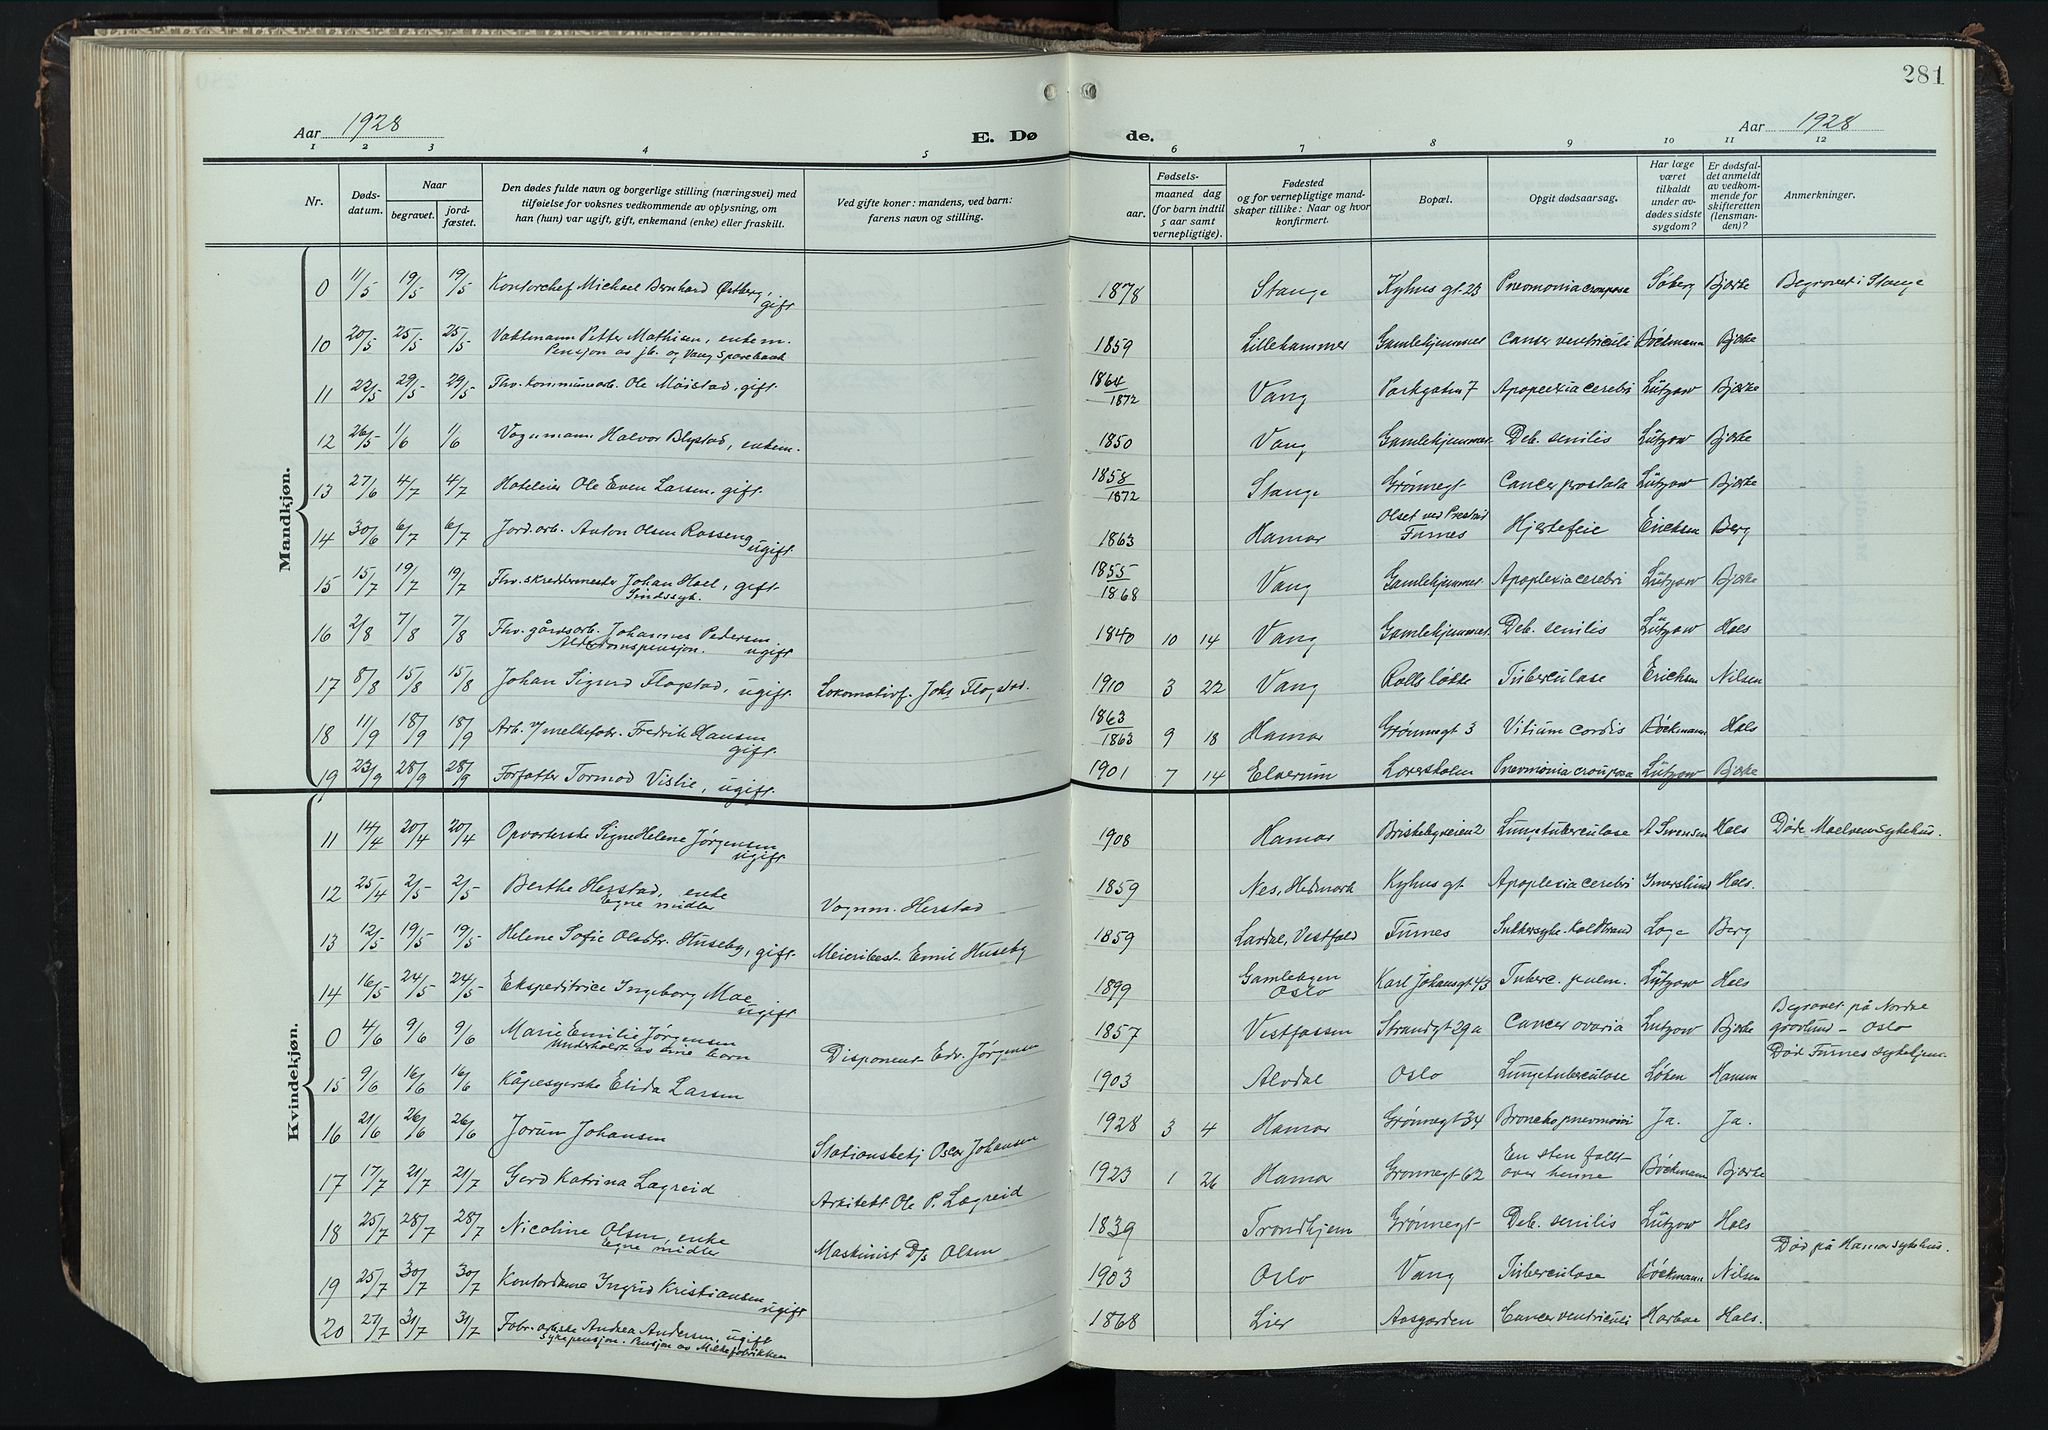 281
Aar 1928
E. Døde.
Aar 1928
1 2 3 4 5 6 7 8 9 10 11 12
Nr.
Dødsdatum.
Naar
begravet.
jordfæstet.
Den dødes fulde navn og borgerlige stilling (næringsvei) med
tilføielse for voksnes vedkommende av oplysning, om
han (hun) var ugift, gift, enkemand (enke) eller fraskilt.
Ved gifte koner: mandens, ved barn:
farens navn og stilling.
Fødsels-
aar.
maaned dag
(for barn indtil
5 aar samt
vernepligtige).
Fødested
og for vernepligtige mandskaper tillike: Naar og hvor
konfirmert.
Bopæl.
Opgit dødsaarsag.
Har læge
været
tilkaldt
under avdødes sidste
sygdom?
Er dødsfaldet anmeldt
av vedkommende for
skifteretten
(lensmanden)?
Anmerkninger.
Mandkjøn.
0 11/5 19/5 19/5 Kontorchef Michael Bernhard Østberg, gift 1878 Stange Kyhus gt. 23 Pneomonia croupose Søberg Bjørke Begravet i Stange
10 20/5 25/5 25/5 Vaktmann Petter Mathisen, enkem. 1859 Lillehammer Gamlehjemmet Canser ventriculi Bøckmann Bjørke
Pensjon av jb. og Vang Sparebank
11 22/5 29/5 29/5 Fhv. kommunearb. Ole Moistad, gift 1864/1872 Vang Parkgaten 7 Apoplexia cerebri Lützow Bjørke
12 26/5 1/6 1/6 Vognmann Halvor Blystad, enkem. 1850 Vang Gamlehjemmet Deb. senilis Lützow Bjørke
13 27/6 4/7 4/7 Hoteleier Ole Even Larsen, gift. 1858/1872 Stange Grønnegt Cancer prostata Lützow Bjørke
14 30/6 6/7 6/7 Jord.arb. Anton Olsen Rosseng ugift 1863 Hamar Olset ved Prestrud Furnes Hjertefeie Ericksen Berg
15 15/7 19/7 19/7 Fhv. skreddermester Johan Hoel, gift. 1855/1868 Vang Gamlehjemmet Apoplexia cerebri Lützow Bjørke
Sindssyk.
16 2/8 7/8 7/8 Fhv. gårdsarb. Johannes Pedersen ugift 1840 10 14 Vang Gamlehjemmet Deb. senilis Lützow Hals
Alderdomspensjon.
17 8/8 15/8 15/8 Johan Sigurd Flagstad, ugift. Lokomotivf. Johs Flagstad. 1910 3 22 Vang Rollsløkke Tuberculose Ericksen Nilsen
18 11/9 18/9 18/9 Arb. v/ melkefabr. Fredrik Hansen gift 1863/1863 9 18 Hamar Grønnegt 3 Vitium cordis Bøckmann Hals
19 23/9 28/9 28/9 Forfatter Tormod Vislie, ugift. 1901 7 14 Elverum Lovisholm Pneomonia croupose Lützow Bjørke
Kvindekjøn.
11 14/4 20/4 20/4 Opvarterske Signe Helene Jørgensen ugift 1908 Hamar Briskebyveien 2 Lungetuberculose A Svensen Hals Døde Maelvem sykehus.
12 25/4 2/5 2/5 Berthe Herstad, enke Vognm. Herstad 1859 Nes, Hedmark Kyhus gt Apoplexia cerebri Imerslund Hals.
Egne midler
13 12/5 19/5 19/5 Helene Sofie Olsdtr. Huseby, gift. Meieribest. Emil Huseby 1859 Lardal, Vestfold Furnes Sukkersyke. Koldbrand Loge Berg
14 16/5 24/5 24/5 Ekspeditrice Ingeborg Moe ugift. 1899 Gamlebyen Oslo Karl Johansgt 43 Tuberc. pulm. Lützow Hals
0 4/6 9/6 9/6 Marie Emilie Jørgensen Disponent Edv. Jørgensen 1857 Vestfossen Strandgt 29a Cancer ovaria Lützow Bjørke Begravet på Nordre gravlund – Oslo
Underholdt av sine barn
15 9/6 16/6 16/6 Kåpesyerske Elida Larsen 1903 Alvdal Oslo Lungetuberculose Løken Hansen Død Furnes sykehjem
16 21/6 26/6 26/6 Jorun Johansen Stationsbetj Oscar Johansen 1928 3 4 Hamar Grønnegt 34 Broncho pneomoni Ja. Ja.
17 17/7 21/7 21/7 Gerd Katrina Lægreid Arkitekt Ole P. Lægreid 1923 1 26 Hamar Grønnegt 62 En sten falt over henne Bøckmann Bjørke
18 25/7 28/7 28/7 Nicoline Olsen, enke Maskinist D/s Olsen 1839 Trondhjem Grønnegt Deb. senilis Lützow Hals
Egne midler
19 25/7 30/7 30/7 Kontordame Ingrid Kristiansen ugift 1903 Oslo Vang Tuberculose Bøckmann Nilsen Død på Hamar sykehus.
20 27/7 31/7 31/7 Fabr. arbeiske Andrea Andersen, ugift 1868 Lier Aasgarden Cancer ventriculi Harboe Hals.
Sykepensjon. Pensjon av Melkefabrikken